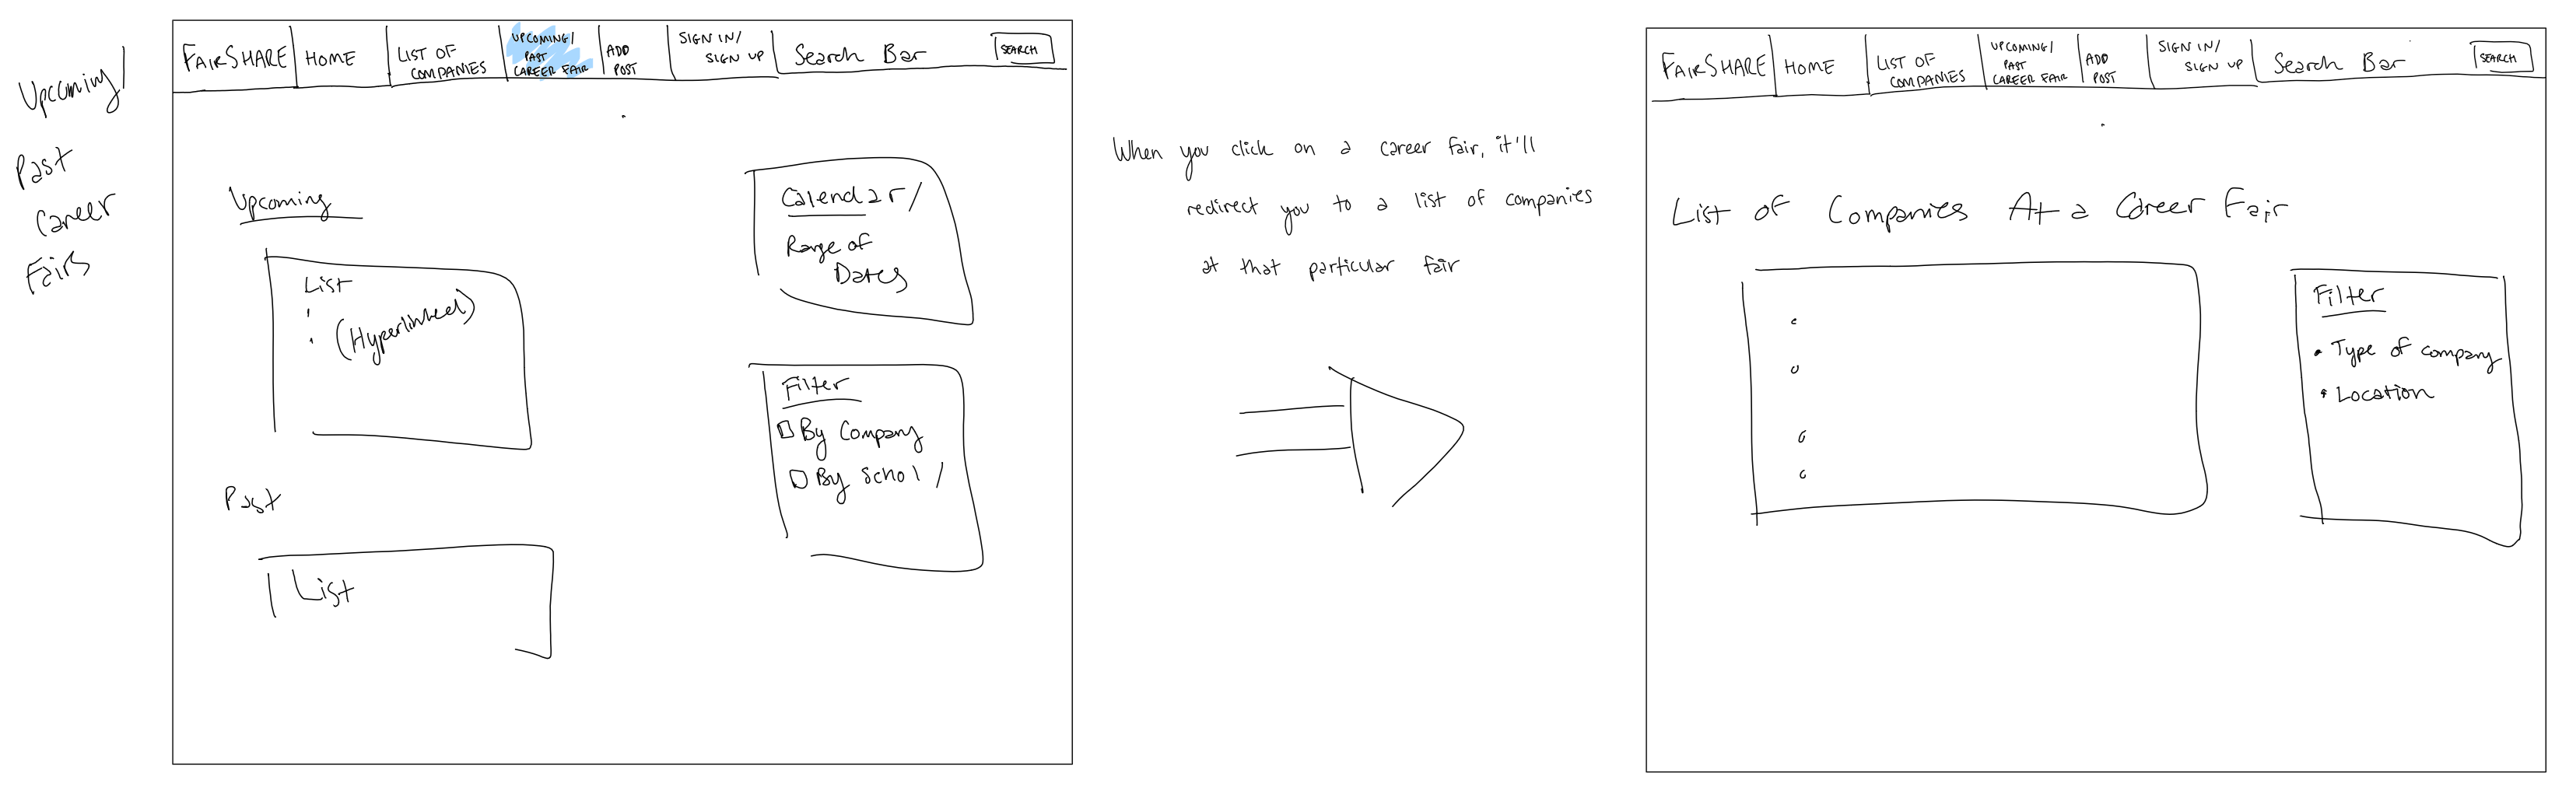 Upcoming/
Past
Career
Fairs
FAIRSHARE HOME LIST OF COMPANIES UPCOMING/ PAST CAREER FAIR ADD POST SIGN IN/ SIGN UP Search Bar SEARCH
Upcoming
List
(Hyperlinked)
Past
List
Calendar/
Range of
Dates
Filter
By Company
By Schol /
When you click on a career fair, it'll
redirect you to a list of companies
at that particular fair
FAIRSHARE HOME LIST OF COMPANIES UPCOMING/ PAST CAREER FAIR ADD POST SIGN IN/ SIGN UP Search Bar SEARCH
List of Companies At a Career Fair
Filter
• Type of company
• Location